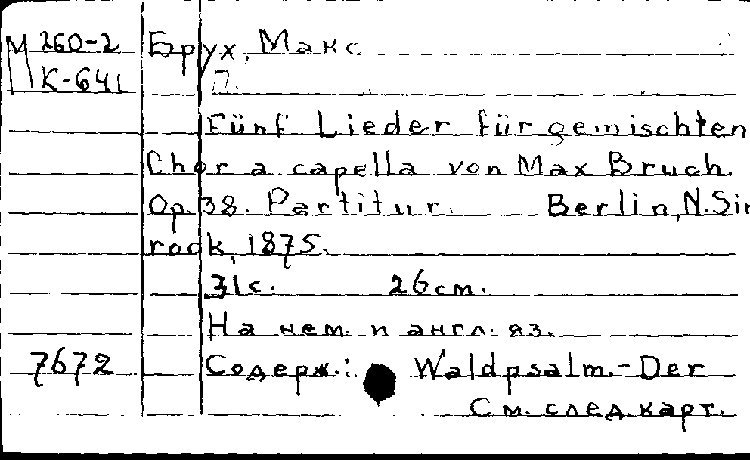 М 260-2 Брух, Макс
К-641 П.
Fünf Lieder für gemischten
Chor a capella von Max Bruch.
Op. 38. Partitur. Berlin, N. Sim
rock, 1875.
31 с. 26 см.
На нем. и англ. яз.
7672 Содерж.: Waldpsalm.-Der
См. след. карт.